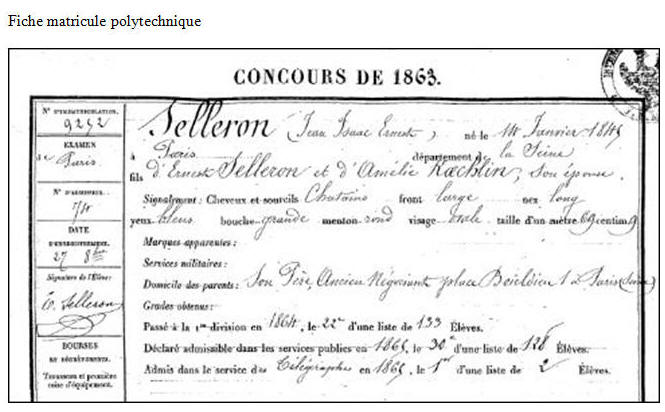 Fiche matricule polytechnique
CONCOURS DE 1863.
N° D'IMMATRICULATION.
9252
EXAMEN
de Paris
N° D'ADMISSION.
74
DATE
D'ENREGISTREMENT.
27 8bre
Signature de l'Élève:
E. Selleron
BOURSES
ET DÉGRÈVEMENTS.
Trousseau et première
mise d'équipement.
Selleron (Jean Isaac Ernest) né le 14 Janvier 1845
à Paris département de la Seine
fils d'Ernest Selleron et d'Amélie Kœchlin, son épouse.
Signalement: Cheveux et sourcils Chatains front large nez long
yeux bleus bouche grande menton rond visage ovale taille d'un mètre 69 centim.
Marques apparentes:
Services militaires:
Domicile des parents: Son Père, Ancien Négociant place Boieldieu 1 à Paris (Seine)
Grades obtenus:
Passé à la 1re division en 1864, le 22e d'une liste de 133 Élèves.
Déclaré admissible dans les services publics en 1865, le 30e d'une liste de 128 Élèves.
Admis dans le service des Télégraphes en 1865, le 1er d'une liste de 2 Élèves.